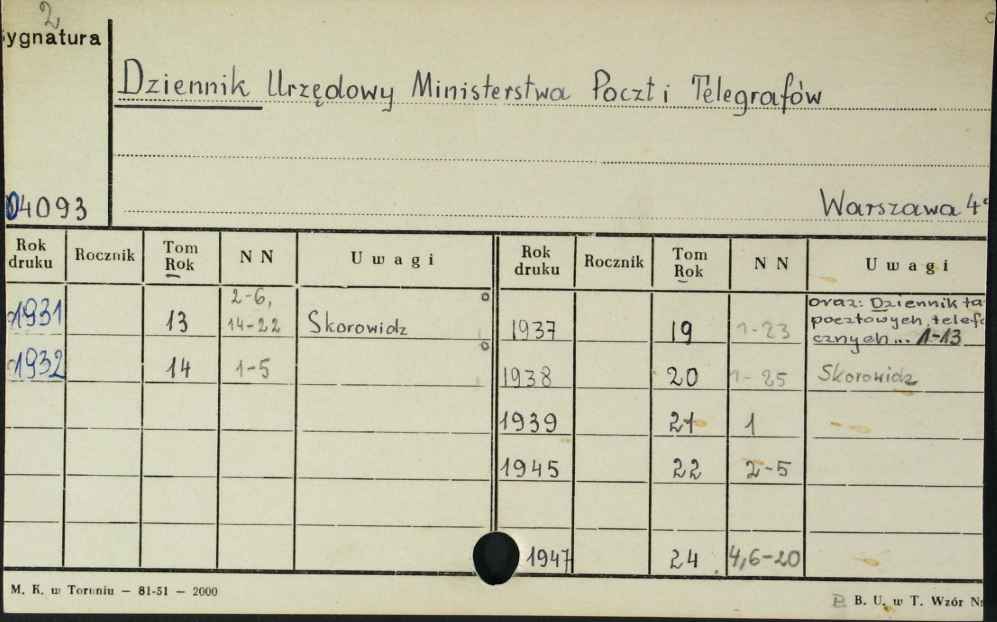 2
ygnatura
Dziennik Urzędowy Ministerstwa Poczt i Telegrafów
04093
Warszawa 4°
Rok druku Rocznik Tom Rok N N Uwagi
1931 13 2-6, 14-22 Skorowidz
1932 14 1-5
Rok druku Rocznik Tom Rok N N Uwagi
1937 19 1-23 oraz: Dziennik ta
pocztowych, telefo
cznych... 1-13
1938 20 1-25 Skorowidz
1939 21 1
1945 22 2-5
1947 24 4,6-20
M. K. w Toruniu — 81-51 — 2000
B. U. w T. Wzór Nr